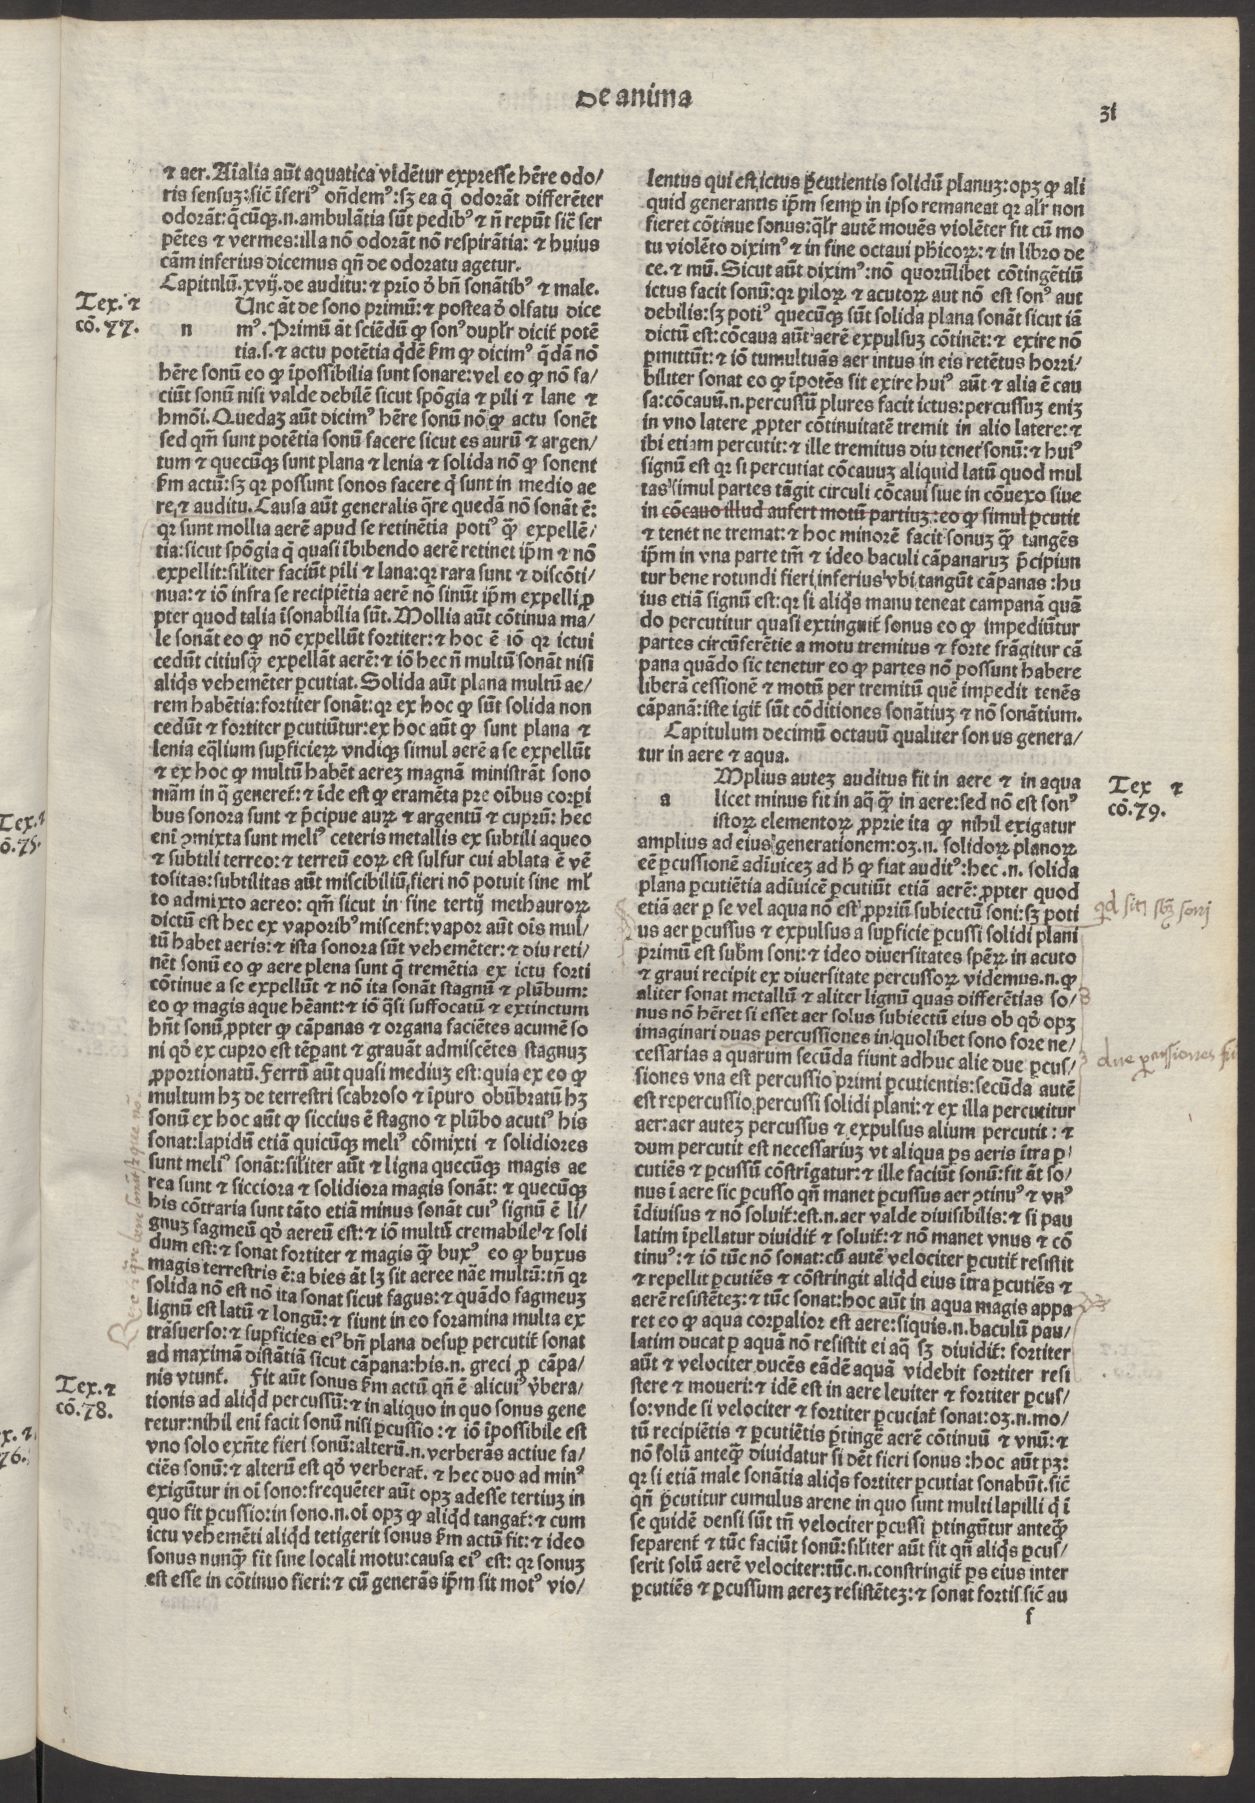 De anima
31
⁊ aer. Aĩalia aũt aquatica vidẽtur expresse hẽre odo/
ris sensuꝫ: sic̃ ĩferiꝰ oñdemꝰ: sꝫ ea q̃ odorãt differẽter
odorãt: q̃cũqꝫ .n. ambulãtia sũt pedibꝰ ⁊ ñ repũt sic̃ ser
pẽtes ⁊ vermes: illa nõ odorãt nõ respirãtia: ⁊ huius
cãm inferius dicemus qñ de odoratu agetur.
Capitulũ .xvij. de auditu: ⁊ prĩo ð bñ sonãtibꝰ ⁊ male.
Tex. ⁊
cõ. 77.
Unc ãt de sono primũ: ⁊ postea ð olfatu dice
n mꝰ. Primũ ãt sciẽdũ ꝙ sonꝰ duplr̃ dicit̃ potẽ
tia .s. ⁊ actu potẽtia q̃dẽ k̃m ꝙ dicimꝰ q̃dã nõ
hẽre sonũ eo ꝙ ĩpossibilia sunt sonare: vel eo ꝙ nõ fa/
ciũt sonũ nisi valde debilẽ sicut spõgia ⁊ pili ⁊ lane ⁊
hmõi. Quedaꝫ aũt dicimꝰ hẽre sonũ nõ ꝙ actu sonẽt
sed qm̃ sunt potẽtia sonũ facere sicut es aurũ ⁊ argen/
tum ⁊ quecũqꝫ sunt plana ⁊ lenia ⁊ solida nõ ꝙ sonent
k̃m actũ: sꝫ qꝛ possunt sonos facere q̃ sunt in medio ae
re, ⁊ auditu. Causa aũt generalis q̃re quedã nõ sonãt ẽ:
qꝛ sunt mollia aerẽ apud se retinẽtia potiꝰ q̃ꝫ expellẽ/
tia: sicut spõgia q̃ quasi ĩbibendo aerẽ retinet ip̃m ⁊ nõ
expellit: sil̃iter faciũt pili ⁊ lana: qꝛ rara sunt ⁊ discõti/
nua: ⁊ iõ infra se recipiẽtia aerẽ nõ sinũt ip̃m expelli, ꝓ
pter quod talia ĩsonabilia sũt. Mollia aũt cõtinua ma/
le sonãt eo ꝙ nõ expellũt fortiter: ⁊ hoc ẽ iõ qꝛ ictui
cedũt citiusq̃ꝫ expellãt aerẽ: ⁊ iõ hec ñ multũ sonãt nisi
aliq̃s vehemẽter ꝑcutiat. Solida aũt plana multũ ae/
rem habẽtia: fortiter sonãt: qꝛ ex hoc ꝙ sũt solida non
cedũt ⁊ fortiter ꝑcutiũtur: ex hoc aũt ꝙ sunt plana ⁊
lenia eq̃lium suꝑficierꝝ vndiqꝫ simul aerẽ a se expellũt
⁊ ex hoc ꝙ multũ habẽt aereꝫ magnã ministrãt sono
mãm in q̃ generet̃: ⁊ ĩde est ꝙ eramẽta pre oĩbus corꝑi
bus sonora sunt ⁊ p̃cipue aurꝝ ⁊ argentũ ⁊ cuprũ: hec
eni ꝯmixta sunt meliꝰ ceteris metallis ex subtili aqueo
⁊ subtili terreo: ⁊ terreũ eorꝝ est sulfur cui ablata ẽ vẽ
tositas: subtilitas aũt miscibiliũ, fieri nõ potuit sine ml̃
to admixto aereo: qm̃ sicut in fine tertij methaurorꝝ
dictũ est hec ex vaporibꝰ miscent̃: vapor aũt oĩs mul/
tũ habet aeris: ⁊ ista sonora sũt vehemẽter: ⁊ diu reti/
nẽt sonũ eo ꝙ aere plena sunt q̃ tremẽtia ex ictu forti
cõtinue a se expellũt ⁊ nõ ita sonãt stagnũ ⁊ plũbum:
eo ꝙ magis aque hẽant: ⁊ iõ q̃si suffocatũ ⁊ extinctum
hñt sonũ ꝓpter ꝙ cãpanas ⁊ organa faciẽtes acumẽ so
ni qð ex cupro est tẽꝑant ⁊ grauãt admiscẽtes stagnuꝫ
ꝓportionatũ. Ferrũ aũt quasi mediuꝫ est: quia ex eo ꝙ
multum hꝫ de terrestri scabroso ⁊ ĩpuro obũbratũ hꝫ
sonũ ex hoc aũt ꝙ siccius ẽ stagno ⁊ plũbo acutiꝰ his
sonat: lapidũ etiã quicũqꝫ meliꝰ cõmixti ⁊ solidiores
sunt meliꝰ sonãt: sil̃iter aũt ⁊ ligna quecũqꝫ magis ae
rea sunt ⁊ sicciora ⁊ solidiora magis sonãt: ⁊ quecũqꝫ
his cõtraria sunt tãto etiã minus sonãt cuiꝰ signũ ẽ li/
gnuꝫ sagmeũ qð aereũ est: ⁊ iõ multũ cremabile ⁊ soli
dum est: ⁊ sonat fortiter ⁊ magis q̃ꝫ buxꝰ eo ꝙ buxus
magis terrestris ẽ: a bies ãt lꝫ sit aeree nãe multũ: tñ qꝛ
solida nõ est nõ ita sonat sicut fagus: ⁊ quãdo fagmeuꝫ
lignũ est latũ ⁊ longũ: ⁊ fiunt in eo foramina multa ex
trãsuerso: ⁊ suꝑficies eiꝰ bñ plana desuꝑ percutit̃ sonat
ad maximã distãtiã sicut cãpana: his .n. greci ꝓ cãpa/
nis vtunt̃. Fit aũt sonus k̃m actũ qñ ẽ alicuiꝰ v̓bera/
Tex. ⁊
cõ. 78.
tionis ad aliq̃d percussũ: ⁊ in aliquo in quo sonus gene
retur: nihil eni facit sonũ nisi ꝑcussio: ⁊ iõ ĩpossibile est
vno solo exñte fieri sonũ: alterũ .n. verberãs actiue fa/
ciẽs sonũ: ⁊ alterũ est qð verberat̃. ⁊ hec duo ad minꝰ
exigũtur in oĩ sono: frequẽter aũt opꝫ adesse tertiuꝫ in
quo fit ꝑcussio: in sono .n. oĩ opꝫ ꝙ aliq̃d tangat̃: ⁊ cum
ictu vehemẽti aliq̃d tetigerit sonus k̃m actũ fit: ⁊ ideo
sonus nunq̃ꝫ fit sine locali motu: causa eiꝰ est: qꝛ sonuꝫ
est esse in cõtinuo fieri: ⁊ cũ generãs ip̃m sit motꝰ vio/
lentus qui est ictus p̃cutientis solidũ planuꝫ: opꝫ ꝙ ali
quid generantis ip̃m semꝑ in ipso remaneat qꝛ al̃r non
fieret cõtinue sonus: q̃lr̃ autẽ mouẽs violẽter fit cũ mo
tu violẽto diximꝰ ⁊ in fine octaui ph̃icorꝝ: ⁊ in libro de
ce. ⁊ mũ. Sicut aũt diximꝰ: nõ quorũlibet cõtingẽtiũ
ictus facit sonũ: qꝛ pilorꝝ ⁊ acutorꝝ aut nõ est sonꝰ aut
debilis: sꝫ potiꝰ quecũqꝫ sũt solida plana sonãt sicut iã
dictũ est: cõcaua aũt aerẽ expulsuꝫ cõtinẽt: ⁊ exire nõ
ꝑmittũt: ⁊ iõ tumultuãs aer intus in eis retẽtus horri/
biliter sonat eo ꝙ ĩpotẽs sit exire huiꝰ aũt ⁊ alia ẽ cau
sa: cõcauũ .n. percussũ plures facit ictus: percussuꝫ eniꝫ
in vno latere ꝓpter cõtinuitatẽ tremit in alio latere: ⁊
ibi etiam percutit: ⁊ ille tremitus diu tenet sonũ: ⁊ huiꝰ
signũ est qꝛ si percutiat cõcauuꝫ aliquid latũ quod mul
tas simul partes tãgit circuli cõcaui siue in cõuexo siue
in cõcauo illud aufert motũ partiuꝫ: eo ꝙ simul ꝑcutit
⁊ tenet ne tremat: ⁊ hoc minorẽ facit sonuꝫ q̃ꝫ tangẽs
ip̃m in vna parte tm̃ ⁊ ideo baculi cãpanaruꝫ p̃cipiun
tur bene rotundi fieri inferius vbi tangũt cãpanas: hu
ius etiã signũ est: qꝛ si aliq̃s manu teneat campanã quã
do percutitur quasi extinguit̃ sonus eo ꝙ impediũtur
partes circũferẽtie a motu tremitus ⁊ forte frãgitur cã
pana quãdo sic tenetur eo ꝙ partes nõ possunt habere
liberã cessionẽ ⁊ motũ per tremitũ quẽ impedit tenẽs
cãpanã: iste igit̃ sũt cõditiones sonãtiuꝫ ⁊ nõ sonãtium.
Capitulum decimũ octauũ qualiter sonus genera/
tur in aere ⁊ aqua.
Mplius auteꝫ auditus fit in aere ⁊ in aqua
Tex ⁊
cõ. 79.
a licet minus fit in aq̃ q̃ꝫ in aere: sed nõ est sonꝰ
istorꝝ elementorꝝ ꝓprie ita ꝙ nihil exigatur
amplius ad eius generationem: oꝫ .n. solidorꝝ planorꝝ
eẽ ꝑcussionẽ adĩuiceꝫ ad h̃ ꝙ fiat auditꝰ: hec .n. solida
plana ꝑcutiẽtia adĩuicẽ ꝑcutiũt etiã aerẽ: ꝓpter quod
etiã aer ꝑ se vel aqua nõ est ꝓpriũ subiectũ soni: sꝫ poti
us aer ꝑcussus ⁊ expulsus a suꝑficie ꝑcussi solidi plani
primũ est sub̃m soni: ⁊ ideo diuersitates spẽrꝝ in acuto
⁊ graui recipit ex diuersitate percussorꝝ videmus .n. ꝙ
aliter sonat metallũ ⁊ aliter lignũ quas differẽtias so/
nus nõ hẽret si esset aer solus subiectũ eius ob qð opꝫ
imaginari duas percussiones in quolibet sono fore ne/
cessarias a quarum secũda fiunt adhuc alie due ꝑcus/
siones vna est percussio primi ꝑcutientis: secũda autẽ
est repercussio percussi solidi plani: ⁊ ex illa percutitur
aer: aer auteꝫ percussus ⁊ expulsus alium percutit: ⁊
dum percutit est necessariuꝫ vt aliqua ꝑs aeris ĩtra ꝑ/
cutiẽs ⁊ ꝑcussũ cõstrĩgatur: ⁊ ille faciũt sonũ: fit ãt so/
nus ĩ aere sic ꝑcusso qñ manet ꝑcussus aer ꝯtinuꝰ ⁊ vnꝰ
ĩdiuisus ⁊ nõ soluit̃: est .n. aer valde diuisibilis: ⁊ si pau
latim ĩpellatur diuidit̃ ⁊ soluit̃: ⁊ nõ manet vnus ⁊ cõ
tinuꝰ: ⁊ iõ tũc nõ sonat: cũ autẽ velociter ꝑcutit̃ resistit
⁊ repellit ꝑcutiẽs ⁊ cõstringit aliq̃d eius ĩtra ꝑcutiẽs ⁊
aerẽ resistẽteꝫ: ⁊ tũc sonat: hoc aũt in aqua magis appa
ret eo ꝙ aqua corꝑalior est aere: siquis .n. baculũ pau/
latim ducat ꝑ aquã nõ resistit ei aq̃ sꝫ diuidit̃: fortiter
aũt ⁊ velociter ducẽs eãdẽ aquã videbit fortiter resi
stere ⁊ moueri: ⁊ idẽ est in aere leuiter ⁊ fortiter ꝑcus/
so: vnde si velociter ⁊ fortiter ꝑcuciat̃ sonat: oꝫ .n. mo/
tũ recipiẽtis ⁊ ꝑcutiẽtis p̃tingẽ aerẽ cõtinuũ ⁊ vnũ: ⁊
nõ solũ anteq̃ꝫ diuidatur si dẽt fieri sonus: hoc aũt pꝫ:
qꝛ si etiã male sonãtia aliq̃s fortiter ꝑcutiat sonabũt. sic̃
qñ p̃cutitur cumulus arene in quo sunt multi lapilli q̃ ĩ
se quidẽ densi sũt tñ velociter ꝑcussi ꝑtingũtur anteq̃ꝫ
separent̃ ⁊ tũc faciũt sonũ: sil̃iter aũt fit qñ aliq̃s ꝑcus/
serit solũ aerẽ velociter: tũc .n. constringit̃ ꝑs eius inter
ꝑcutiẽs ⁊ ꝑcussum aereꝫ resistẽteꝫ: ⁊ sonat fortis sic̃ au
f
Tex. ⁊
õ. 75.
x. ⁊
76.
due ꝑcussiones